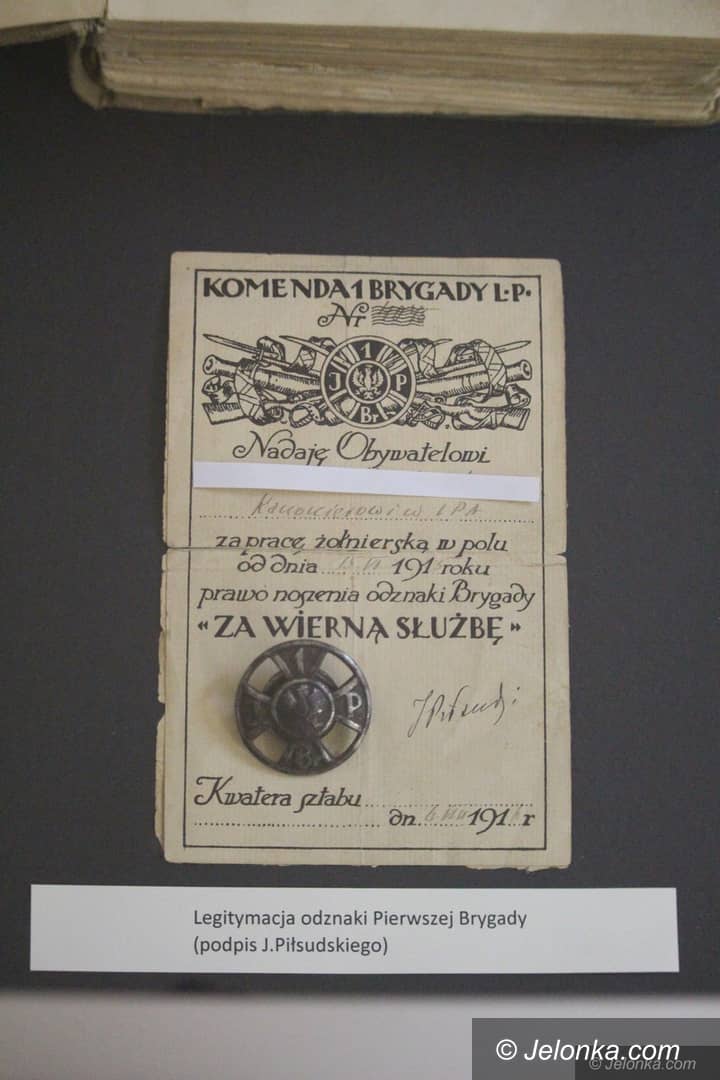 KOMENDA 1 BRYGADY L·P·
Nr
1
J P
Br
Nadaję Obywatelowi
Kanonierowi w 1 P A
za pracę żołnierską w polu
od dnia 191 roku
prawo noszenia odznaki Brygady
«ZA WIERNĄ SŁUŻBĘ»
1
P
Br
JPiłsudski
Kwatera sztabu
dn 6 VIII 191 r
Legitymacja odznaki Pierwszej Brygady
(podpis J.Piłsudskiego)
© Jelonka.com
© Jelonka.com